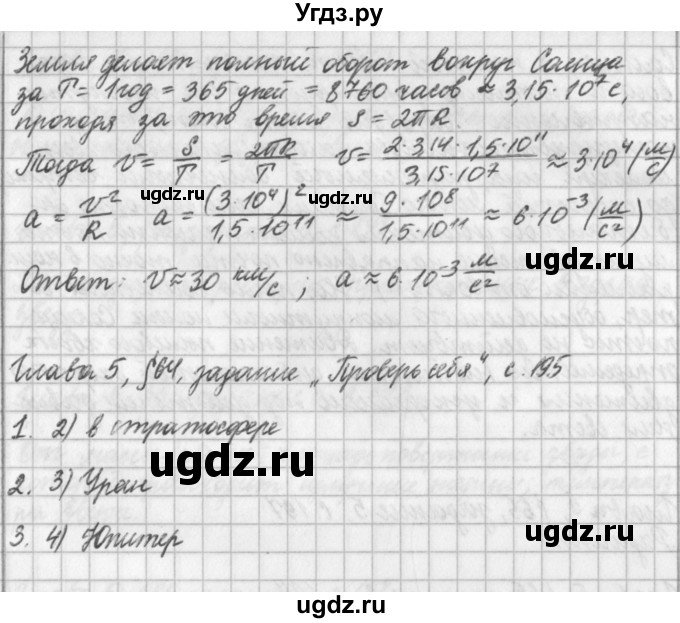 Угдз.ру
Земля делает полный оборот вокруг Солнца
за T = 1 год = 365 дней = 8760 часов ≈ 3,15·10⁷ с,
проходя за это время S = 2πR.
Тогда v = S/T = 2πR/T v = 2·3,14·1,5·10¹¹/3,15·10⁷ ≈ 3·10⁴ (м/с)
a = v²/R a = (3·10⁴)²/1,5·10¹¹ ≈ 9·10⁸/1,5·10¹¹ ≈ 6·10⁻³ (м/с²)
Ответ: v ≈ 30 км/с; a ≈ 6·10⁻³ м/с²
Глава 5, §64, задание „Проверь себя", с. 195
1. 2) в стратосфере
2. 3) Уран
3. 4) Юпитер
ugdz.ru
ugdz.ru
ugdz.ru
ugdz.ru
ugdz.ru
ugdz.ru
ugdz.ru